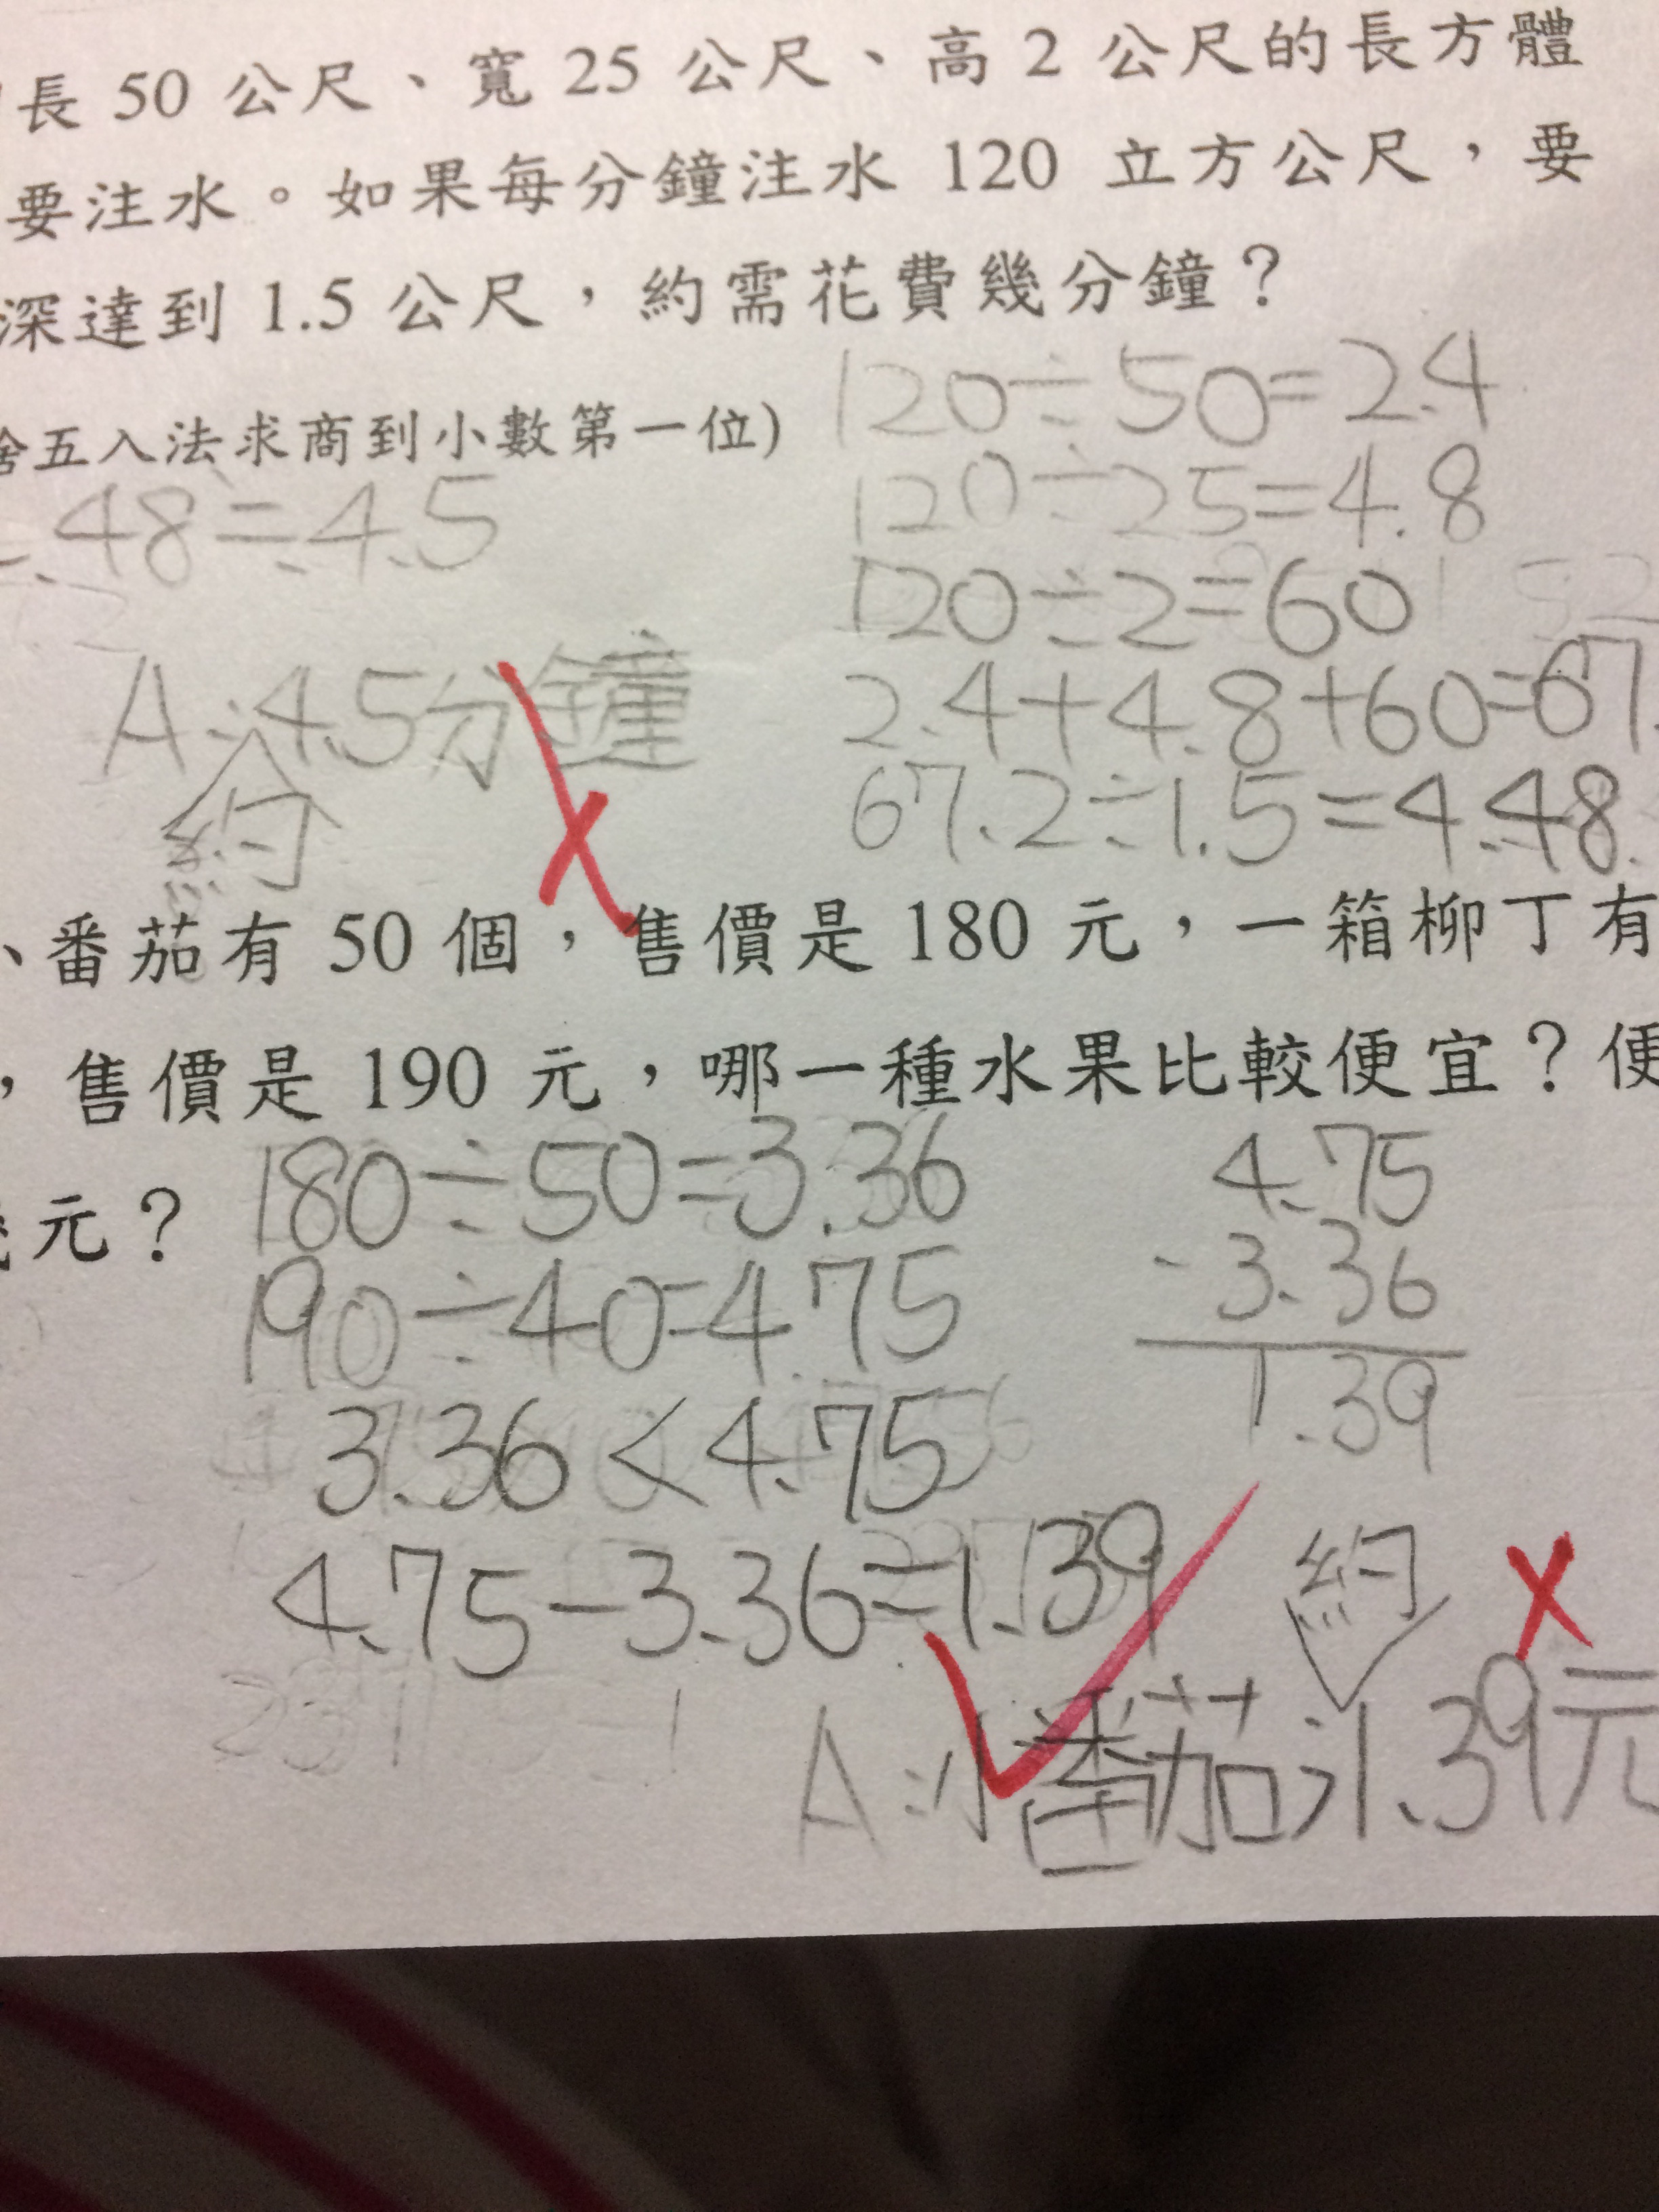 長 50 公尺、寬 25 公尺、高 2 公尺的長方體
要注水。如果每分鐘注水 120 立方公尺，要
深達到 1.5 公尺，約需花費幾分鐘？
捨五入法求商到小數第一位)
120÷50=2.4
120÷25=4.8
120÷2=60
2.4+4.8+60=67.
67.2÷1.5=4.48.
.48≒4.5
A:4.5分鐘
約
、番茄有 50 個，售價是 180 元，一箱柳丁有
，售價是 190 元，哪一種水果比較便宜？便
元？
180÷50=3.36
190÷40=4.75
3.36<4.75
4.75-3.36=1.39
4.75
-3.36
1.39
約
A:小番茄;1.39元